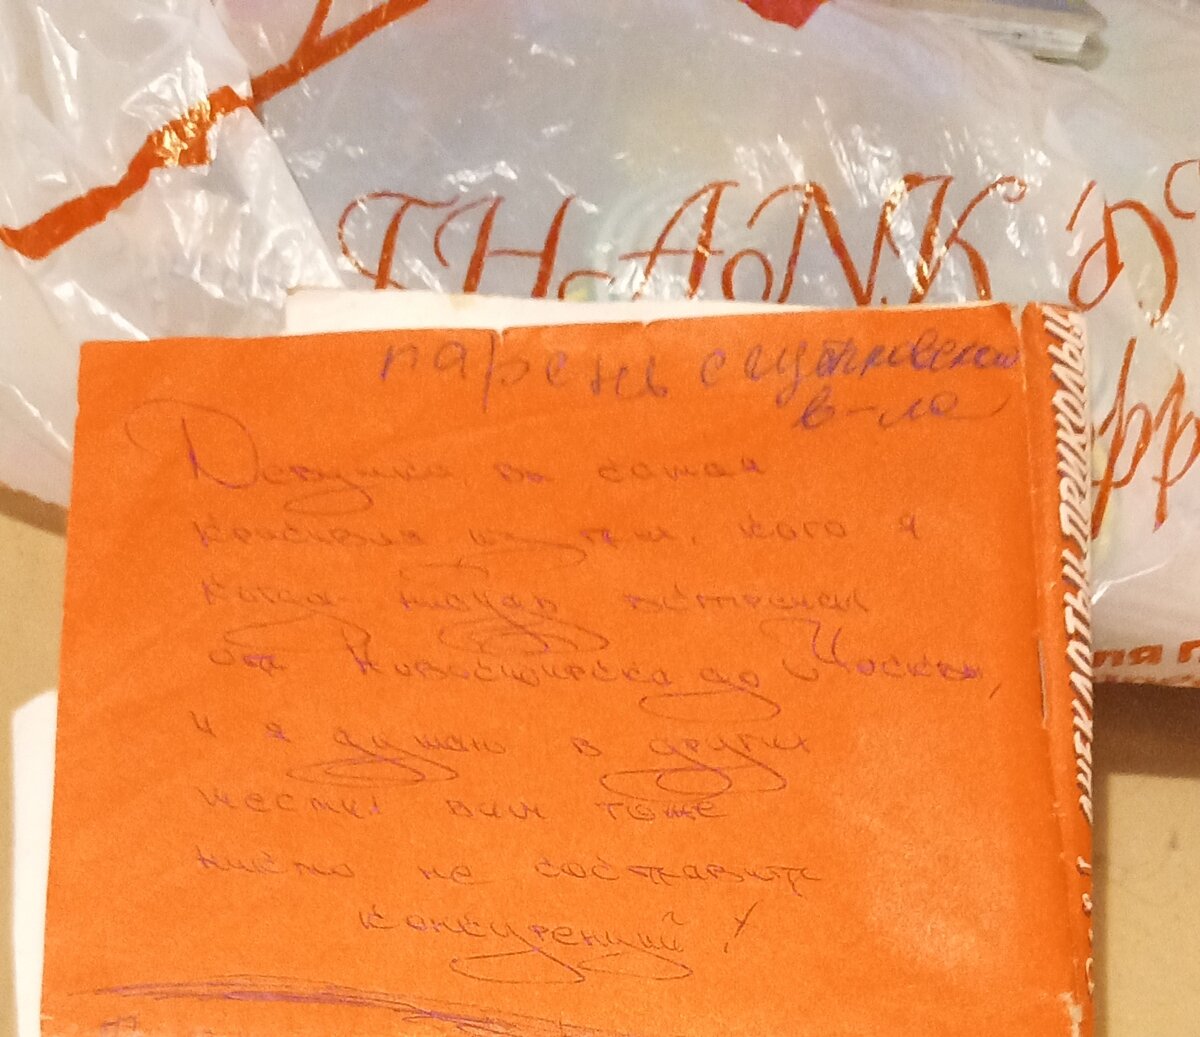 THANK
парень с
в-ла
Девушка, вы самая
красивая из тех, кого я
когда-нибудь встречал
от Новосибирска до Москвы,
и я думаю в других
местах вам тоже
никто не составит
конкуренций!
ПРИКОЛЫ